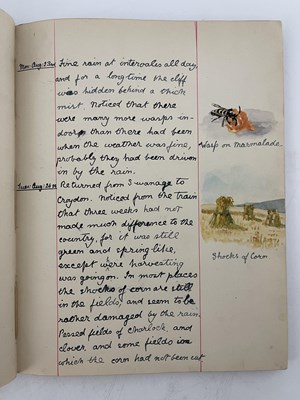 Mon. Aug. 23rd
Fine rain at intervales all day,
and for a long time the cliff
was hidden behind a thick
mist. Noticed that there
were many more wasps in-
doors than there had been
when the weather was fine,
probably they had been driven
in by the rain.
Tues. Aug.
Returned from Swanage to
Croydon. Noticed from the train
that three weeks had not
made much difference to the
country, for it was still
green and spring-like,
except were harvesting
was going on. In most places
the shocks of corn are still
in the fields, and seem to be
rather damaged by the rain.
Passed fields of charlock, and
clover and some fields in
which the corn had not been cut
Wasp on Marmalade.
Shocks of Corn